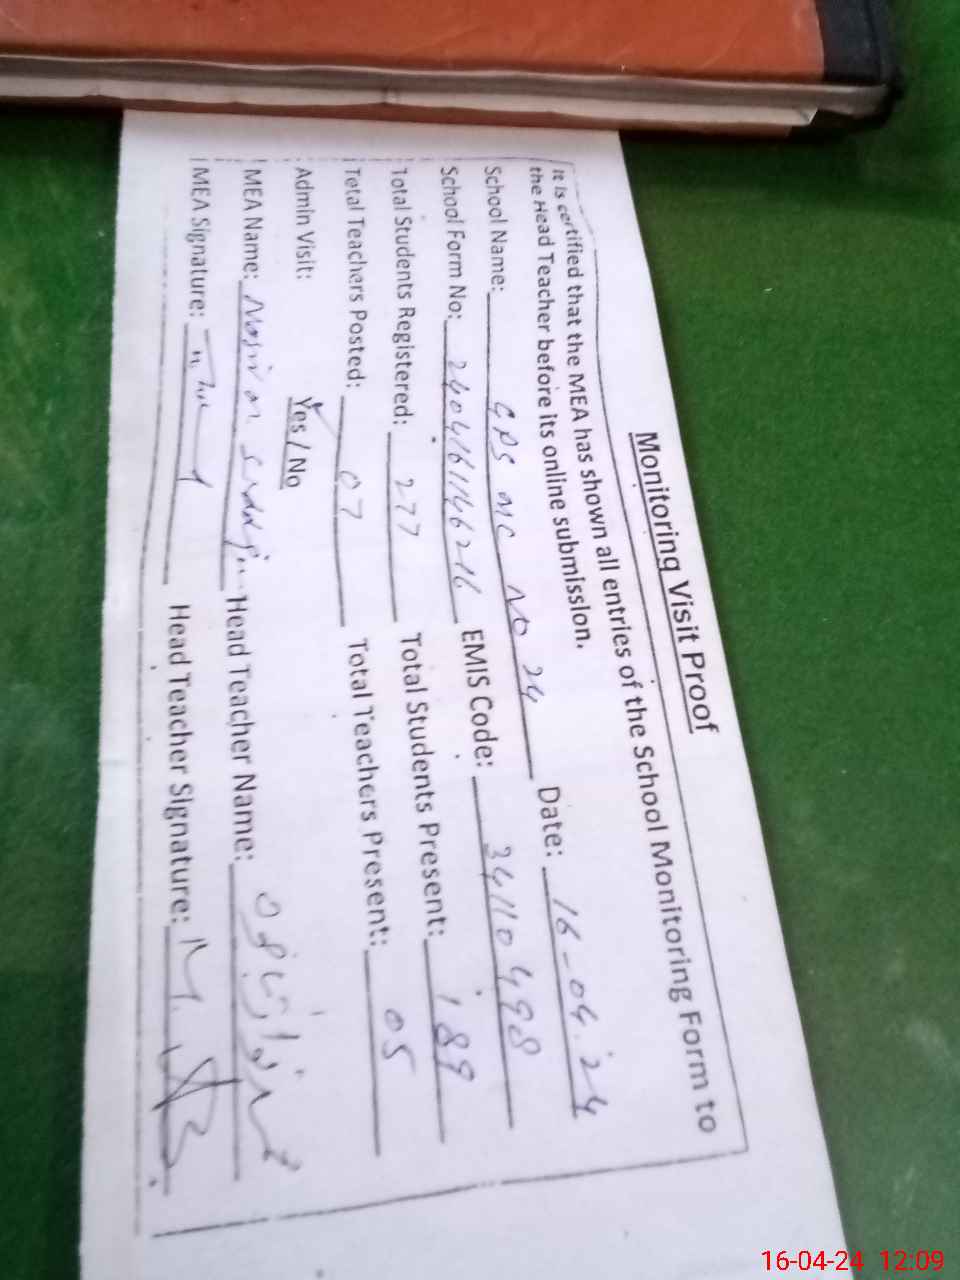 Monitoring Visit Proof
It is certified that the MEA has shown all entries of the School Monitoring Form to
the Head Teacher before its online submission.
School Name: GPS MC NO 24 Date: 16-04-24
School Form No: 2404161146216 EMIS Code: 34110498
Total Students Registered: 277 Total Students Present: 189
Total Teachers Posted: 07 Total Teachers Present: 05
Admin Visit: Yes / No
MEA Name: Head Teacher Name:
MEA Signature: Head Teacher Signature:
16-04-24 12:09